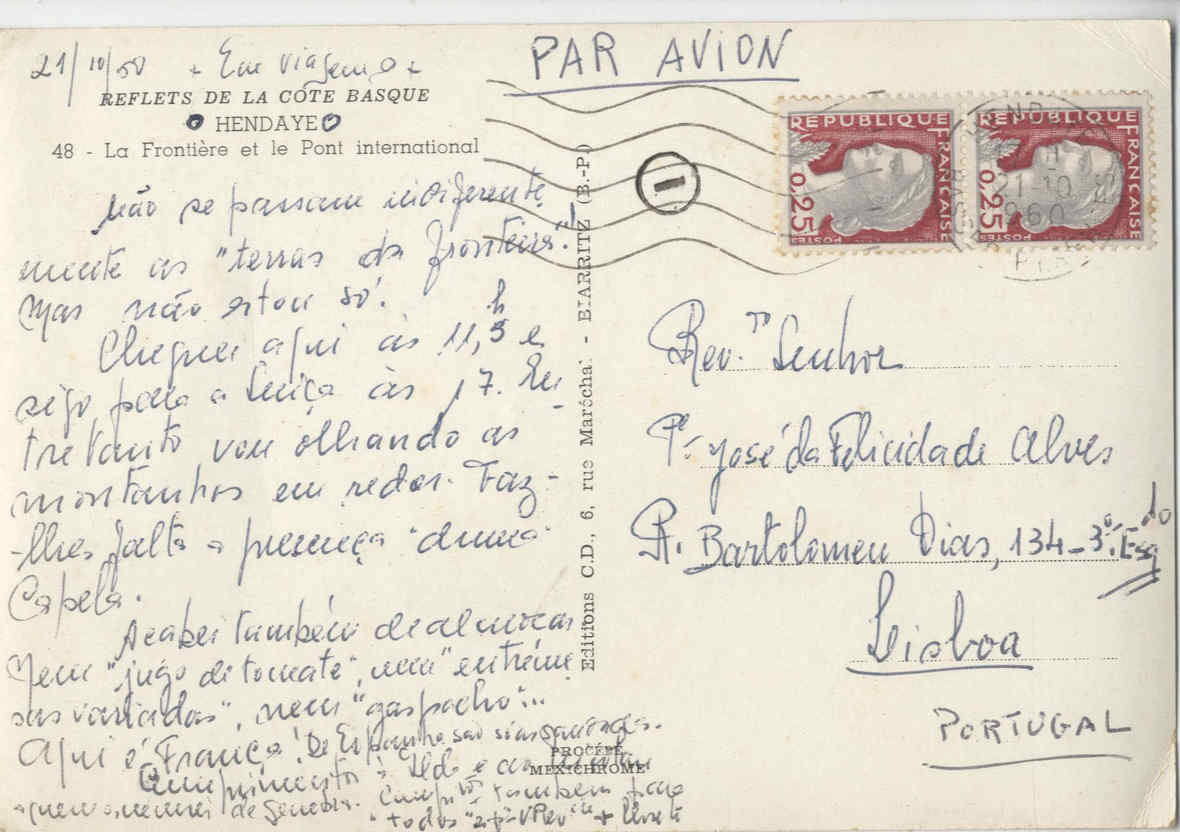 21/10/60 + Em viagem +
REFLETS DE LA CÔTE BASQUE
HENDAYE
48 - La Frontière et le Pont international
Não se passam indiferente
mente as "terras da fronteira"!
Mas não estou só!
Cheguei aqui às 11,5 h e
sigo para a Suiça às 17. En-
tretanto vou olhando as
montanhas em redor. Faz-
-lhes falta a presença duma
Capela.
Acabei também de almoçar
Nem "jugo de tomate", nem "entreme
ses variados", nem "gaspacho"...
Aqui é França! De Espanha são só as saudades.
Cumprimentos à
de Genebra. também para
todos
Editions C.D., 6, rue Maréchal - BIARRITZ (B.-P.)
PROCÉDÉ
MEXICHROME
PAR AVION
1
REPUBLIQUE FRANÇAISE
0,25
POSTES
REPUBLIQUE FRANÇAISE
0,25
POSTES
21-10
1960
Rev.mo Senhor
Pe. José da Felicidade Alves
R. Bartolomeu Dias, 134-3º Esqdo
Lisboa
PORTUGAL